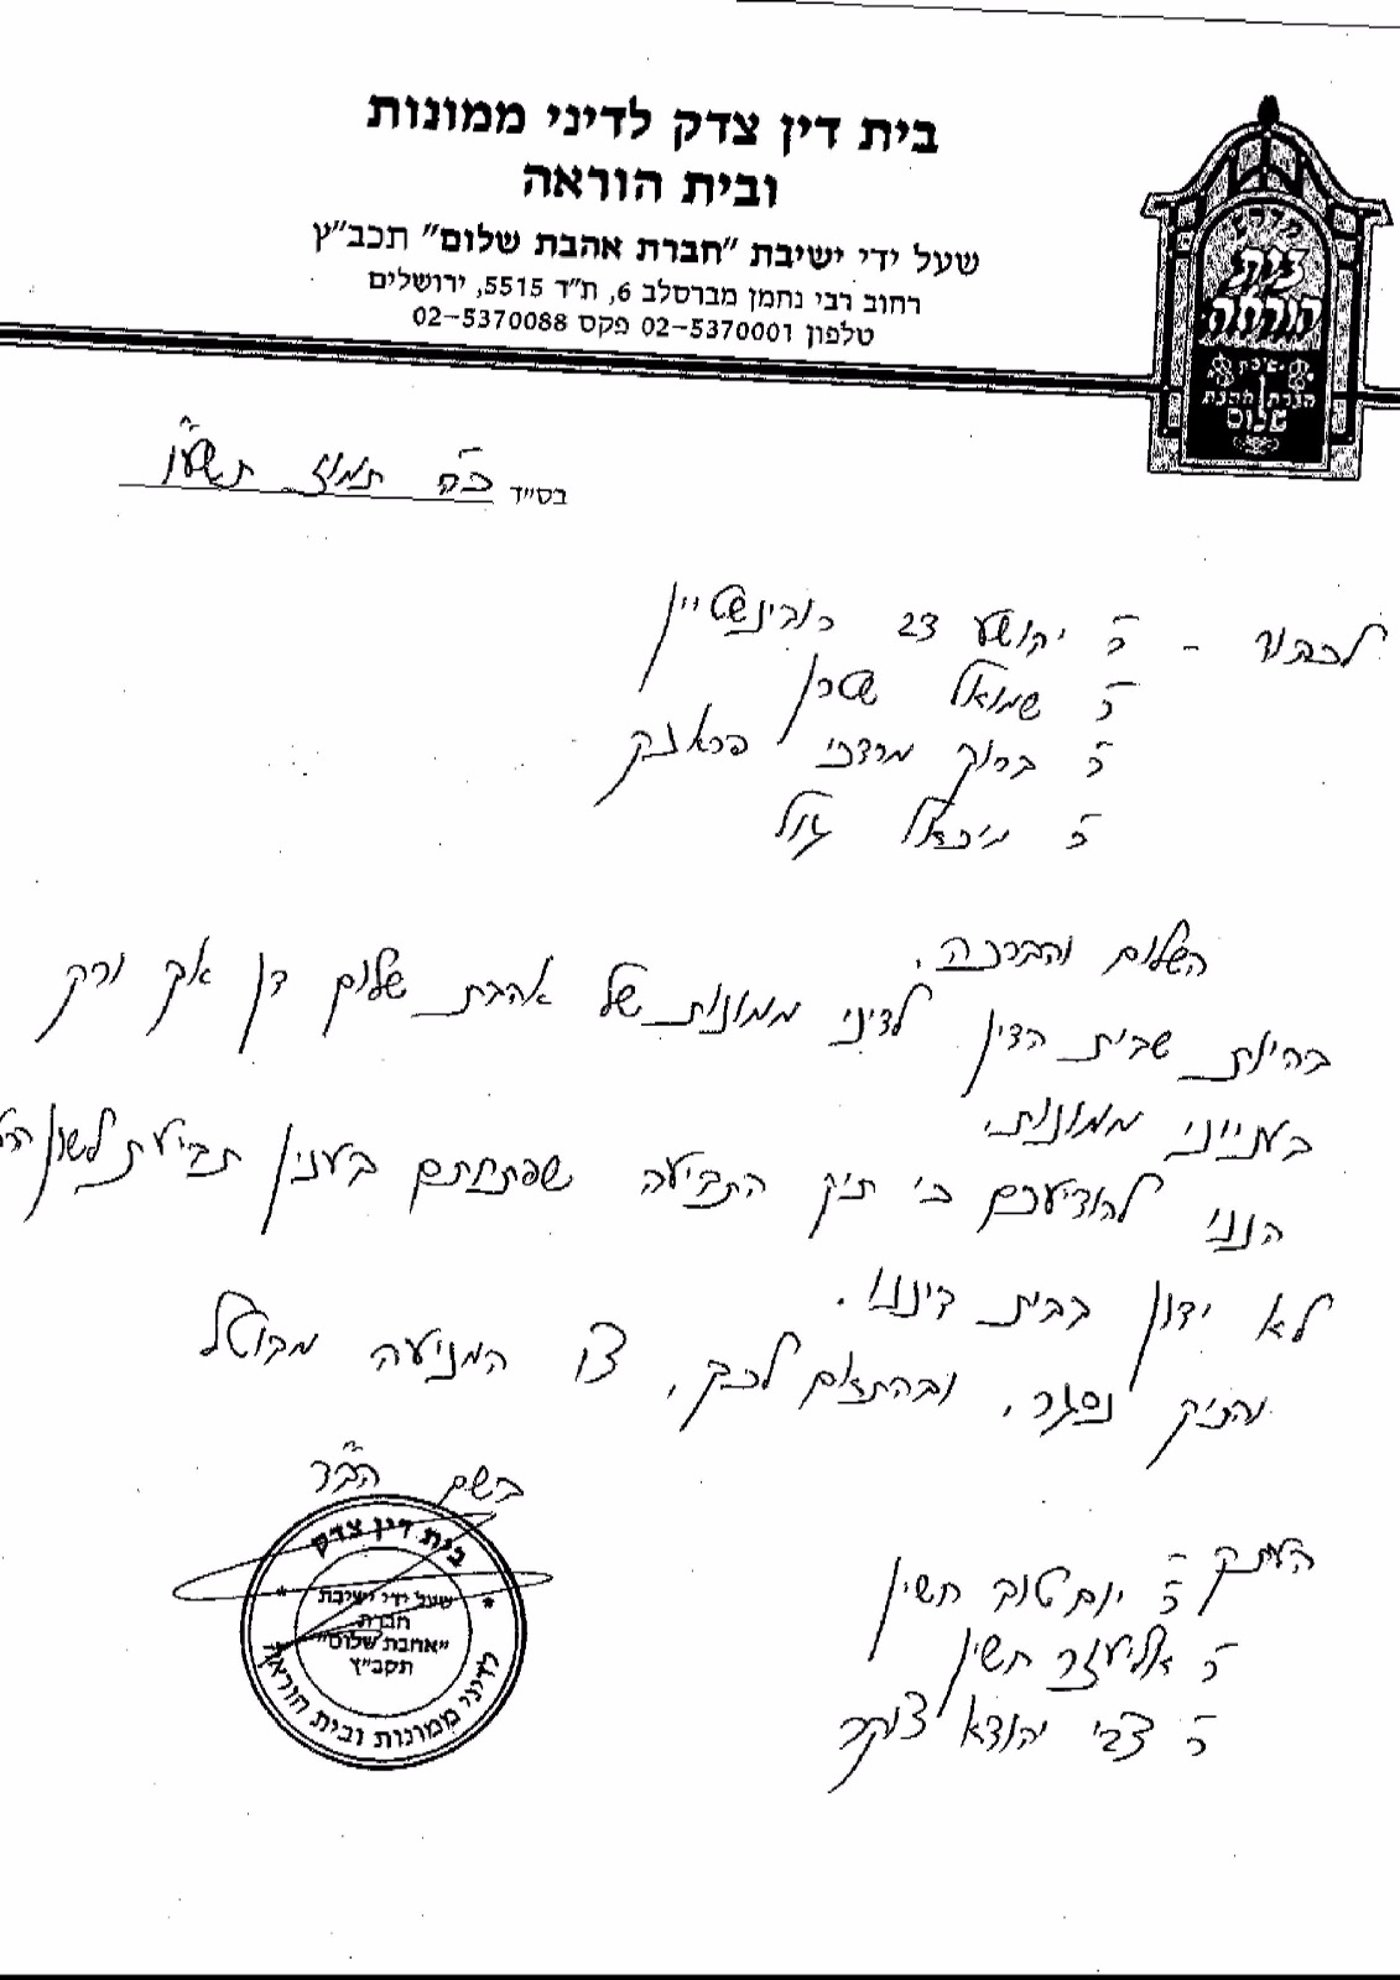 בית דין צדק לדיני ממונות
ובית הוראה
שעל ידי ישיבת "חברת אהבת שלום" תכב"ץ
רחוב רבי נחמן מברסלב 6, ת"ד 5515, ירושלים
טלפון 02-5370001 פקס 02-5370088
בית
הוראה
ישיבת
חברת אהבת
שלום
בס"ד כ"ה תמוז תשע"ו
לכבוד - ר' יהושע דב רובינשטיין
ר' שמואל שטרן
ר' ברוך מרדכי פראנק
ר' מיכאל
השלום והברכה,
בהיות שבית הדין לדיני ממונות של אהבת שלום דן אך ורק
בענייני ממונות,
הנני להודיעכם כי תיק התביעה שפתחתם בענין תביעת לשון
לא ידון בבית דיננו.
והתיק נסגר, ובהתאם לכך, צו המניעה מבוטל
בשם הב"ד
בית דין צדק
שעל ידי ישיבת
חברת
"אהבת שלום"
תכב"ץ
לדיני ממונות ובית הוראה
העתק
ר' יום טוב חשין
ר' אליעזר חשין
ר' צבי יהודא צוקר